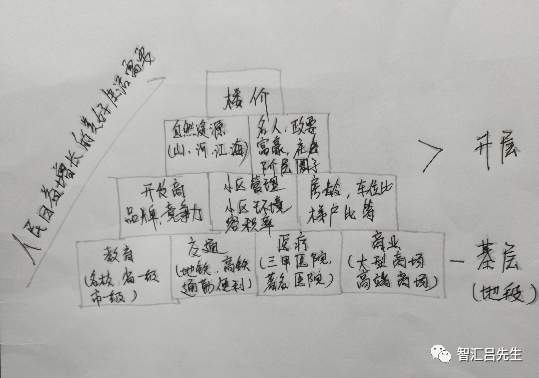 人民日益增长的美好生活需要
楼价
自然资源
(山、河、江海)
名人、政要
富豪、
阶层圈子
> 升层
开发商
品牌、竞争力
小区管理
小区环境
容积率
房龄、车位比
梯户比等
教育
(名校、省一级
市一级)
交通
(地铁、高铁
通勤便利)
医疗
(三甲医院、
著名医院)
商业
(大型商场
高端商场)
— 基层
(地段)
智汇吕先生